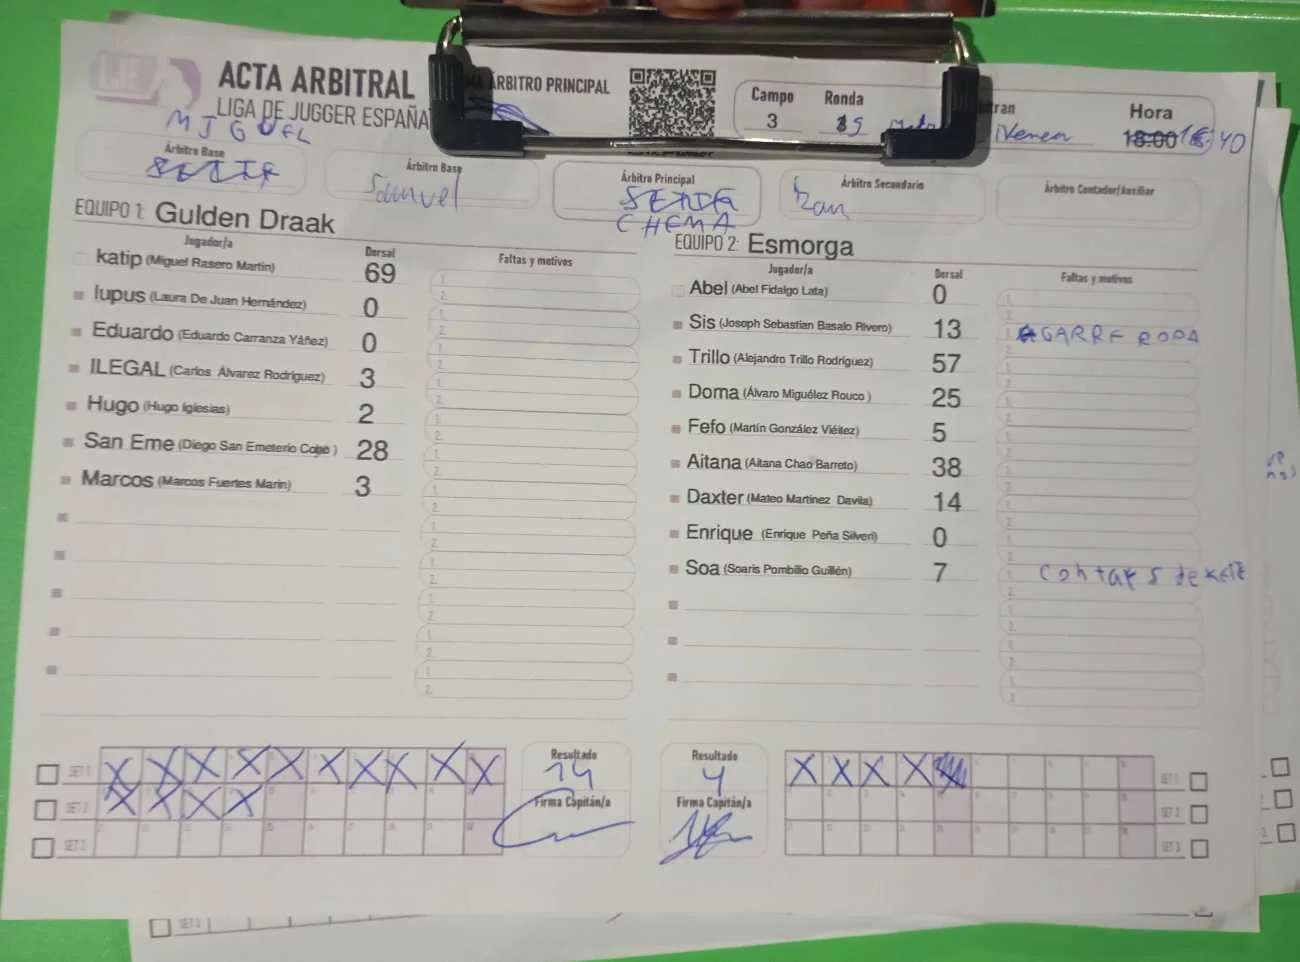 LJE
ACTA ARBITRAL
LIGA DE JUGGER ESPAÑA
ARBITRO PRINCIPAL
Campo Ronda Hora
3 9 18:00 :40
MIGUEL
Árbitro Base Árbitro Base Árbitro Principal Árbitro Secundario Árbitro Contador/Auxiliar
Samuel
CHEMA
EQUIPO 1: Gulden Draak
Jugador/a Dorsal Faltas y motivos
katip (Miguel Rasero Martín) 69
lupus (Laura De Juan Hernández) 0
Eduardo (Eduardo Carranza Yáñez) 0
ILEGAL (Carlos Álvarez Rodríguez) 3
Hugo (Hugo Iglesias) 2
San Eme (Diego San Emeterio) 28
Marcos (Marcos Fuertes Marin) 3
EQUIPO 2: Esmorga
Jugador/a Dorsal Faltas y motivos
Abel (Abel Fidalgo Lata) 0
Sis (Joseph Sebastian Basalo Rivero) 13 AGARRE ROPA
Trillo (Alejandro Trillo Rodríguez) 57
Doma (Álvaro Miguélez Rouco ) 25
Fefo (Martín González Viéitez) 5
Aitana (Aitana Chao Barreto) 38
Daxter (Mateo Martínez Davila) 14
Enrique (Enrique Peña Silveri) 0
Soa (Soaris Pombilio Guillén) 7
SET 1
SET 2
SET 3
Resultado
14
Firma Capitán/a
Resultado
4
Firma Capitán/a
SET 1
SET 2
SET 3